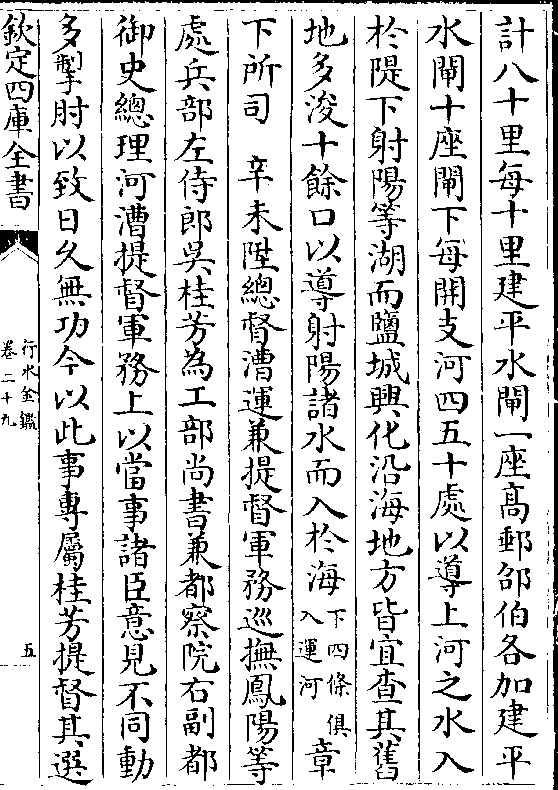 計八十里每十里建平水閘一座髙郵邵伯各加建平
水閘十座閘下每開支河四五十處以導上河之水入
於隄下射陽等湖而鹽城興化沿海地方皆宜查其舊
地多浚十餘口以導射陽諸水而入於海下四條俱入運河章
下所司　辛未陞總督漕運兼提督軍務巡撫鳳陽等
處兵部左侍郎吳桂芳為工部尚書兼都察院右副都
御史總理河漕提督軍務上以當事諸臣意見不同動
多掣肘以致日久無功今以此事專屬桂芳提督其選
欽定四庫全書
行水金鑑
卷二十九
五